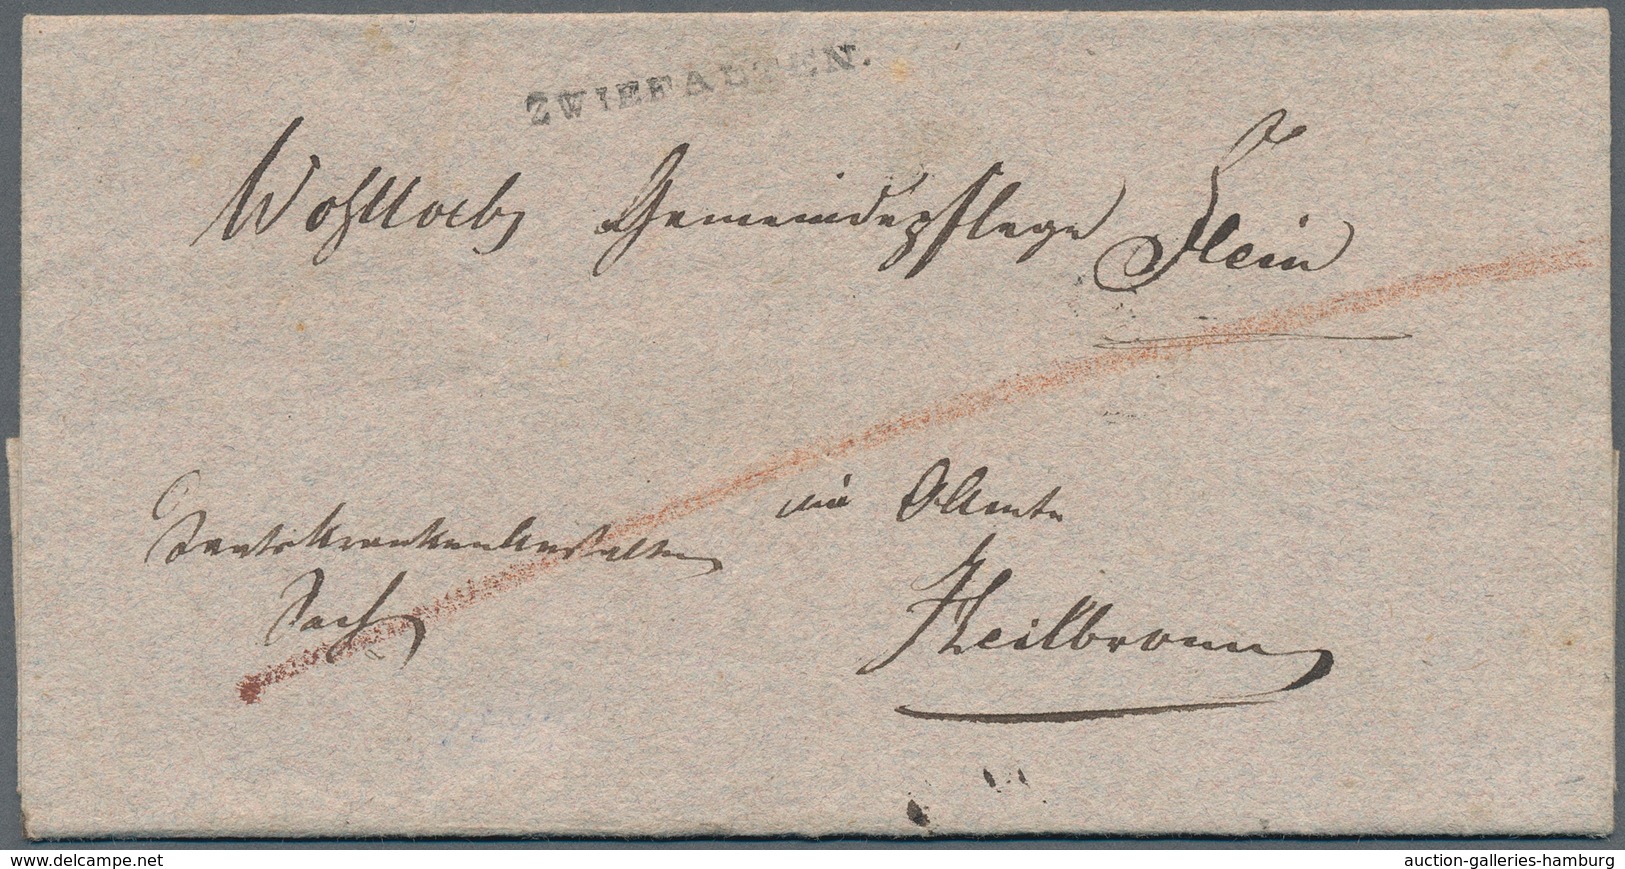 ZWIEFALTEN.
Wohllöbl. Gemeindepflege Flein
OAmts
Staatskrankenanstalten
Sache
Heilbronn
www.delcampe.net
auction-galleries-hamburg